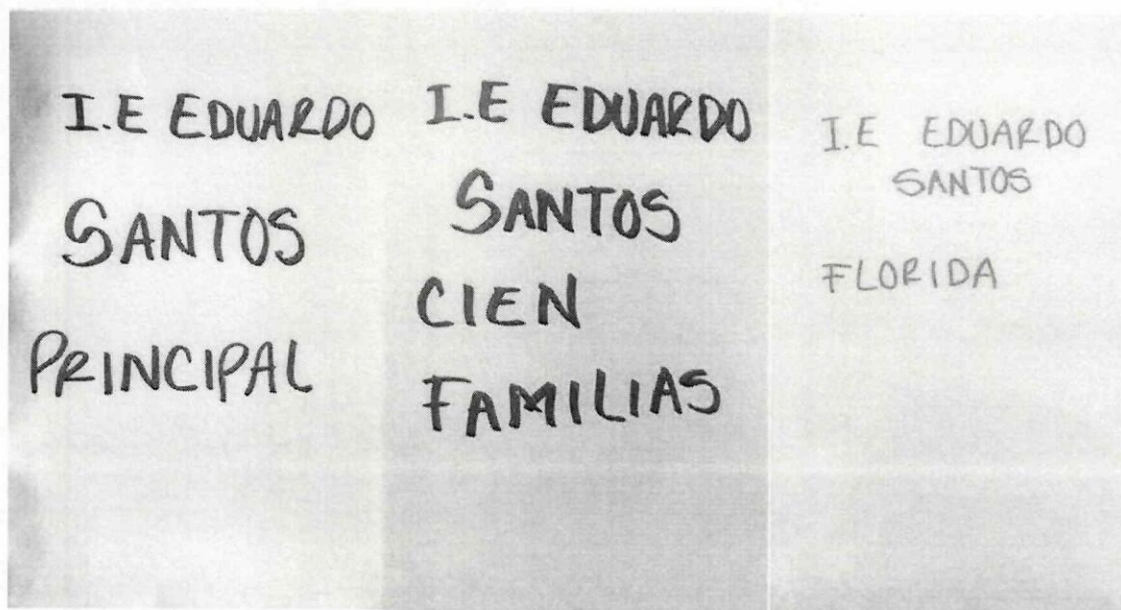 I.E EDUARDO
SANTOS
PRINCIPAL
I.E EDUARDO
SANTOS
CIEN
FAMILIAS
I.E EDUARDO
SANTOS
FLORIDA